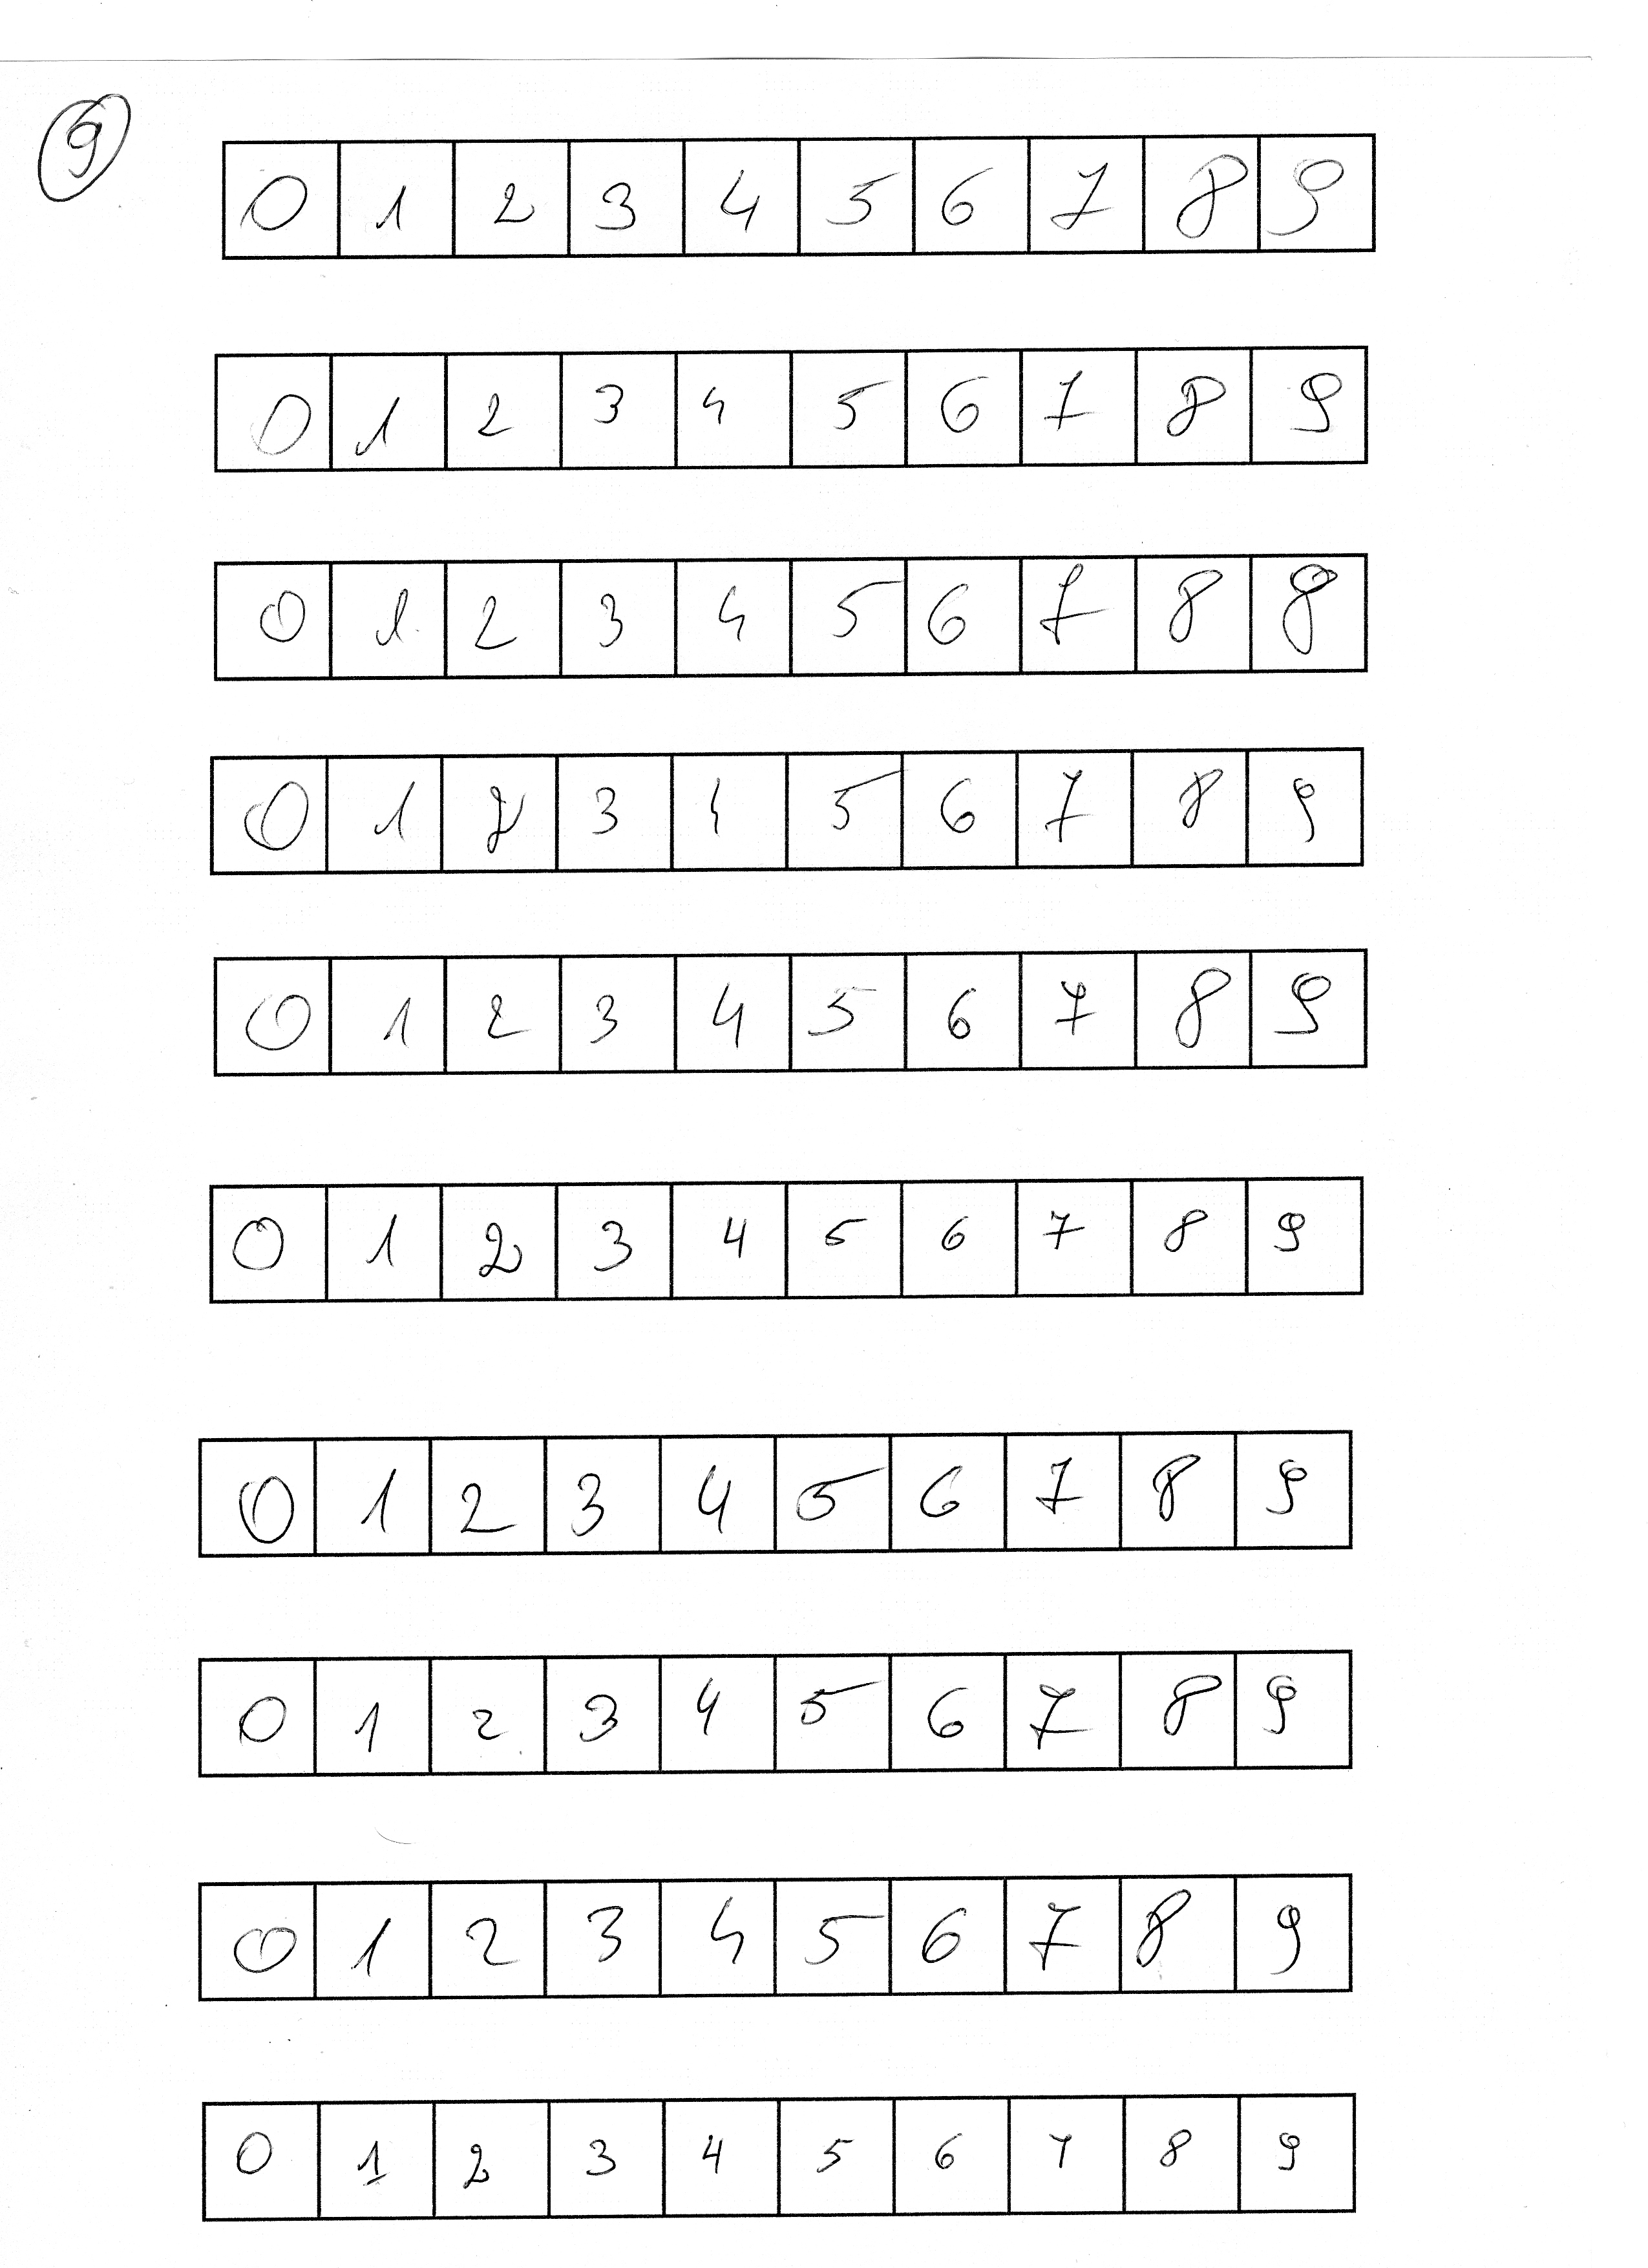 9
0 1 2 3 4 5 6 7 8 9
0 1 2 3 4 5 6 7 8 9
0 1 2 3 4 5 6 7 8 9
0 1 2 3 4 5 6 7 8 9
0 1 2 3 4 5 6 7 8 9
0 1 2 3 4 5 6 7 8 9
0 1 2 3 4 5 6 7 8 9
0 1 2 3 4 5 6 7 8 9
0 1 2 3 4 5 6 7 8 9
0 1 2 3 4 5 6 7 8 9